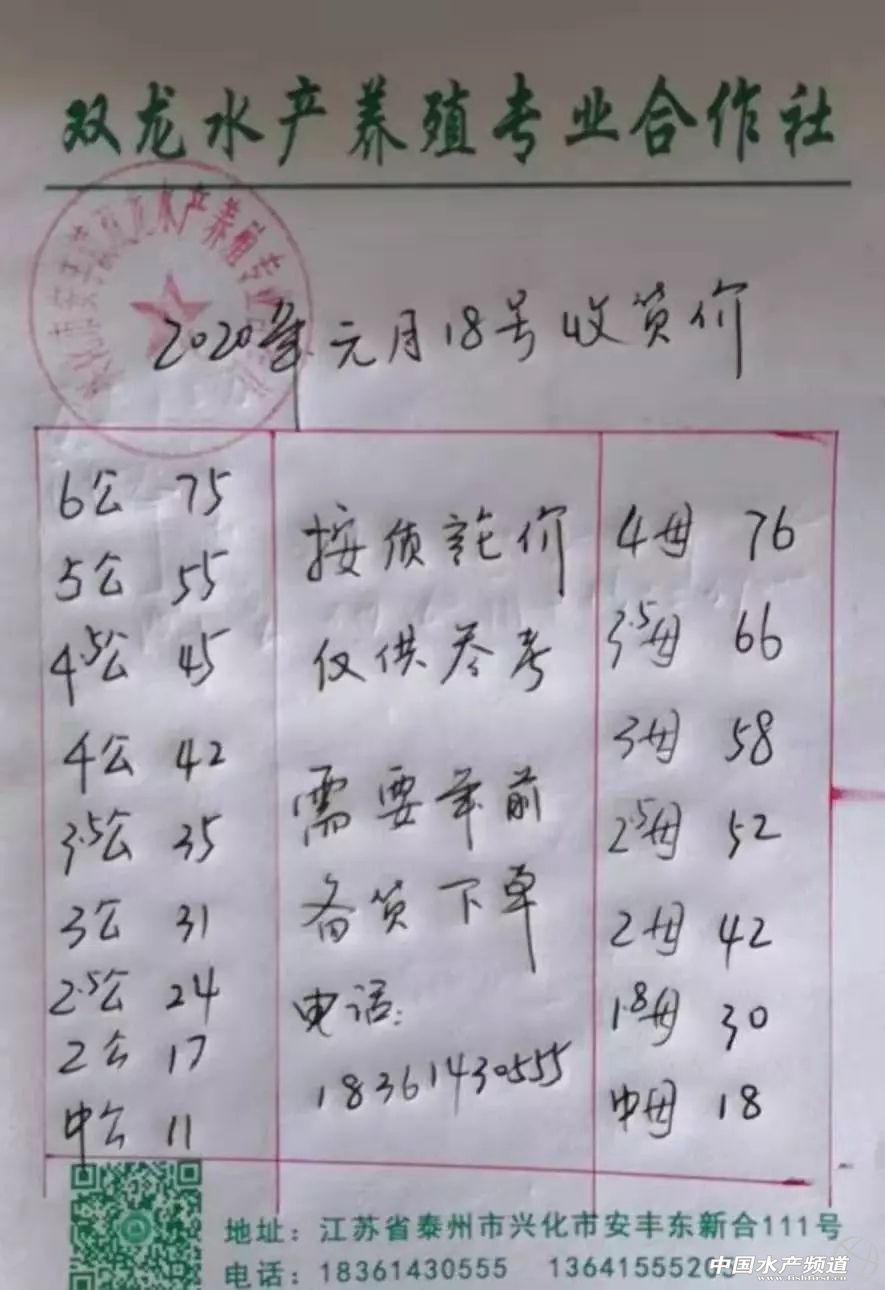 双龙水产养殖专业合作社
2020年元月18号收货价
6公 75
5公 55
4.5公 45
4公 42
3.5公 35
3公 31
2.5公 24
2公 17
中公 11
按质论价
仅供参考
需要年前
备货下单
电话:
18361430555
4母 76
3.5母 66
3母 58
2.5母 52
2母 42
1.8母 30
中母 18
地址:江苏省泰州市兴化市安丰东新合111号
电话:18361430555 13641555205
中国水产频道
www.fishfirst.cn